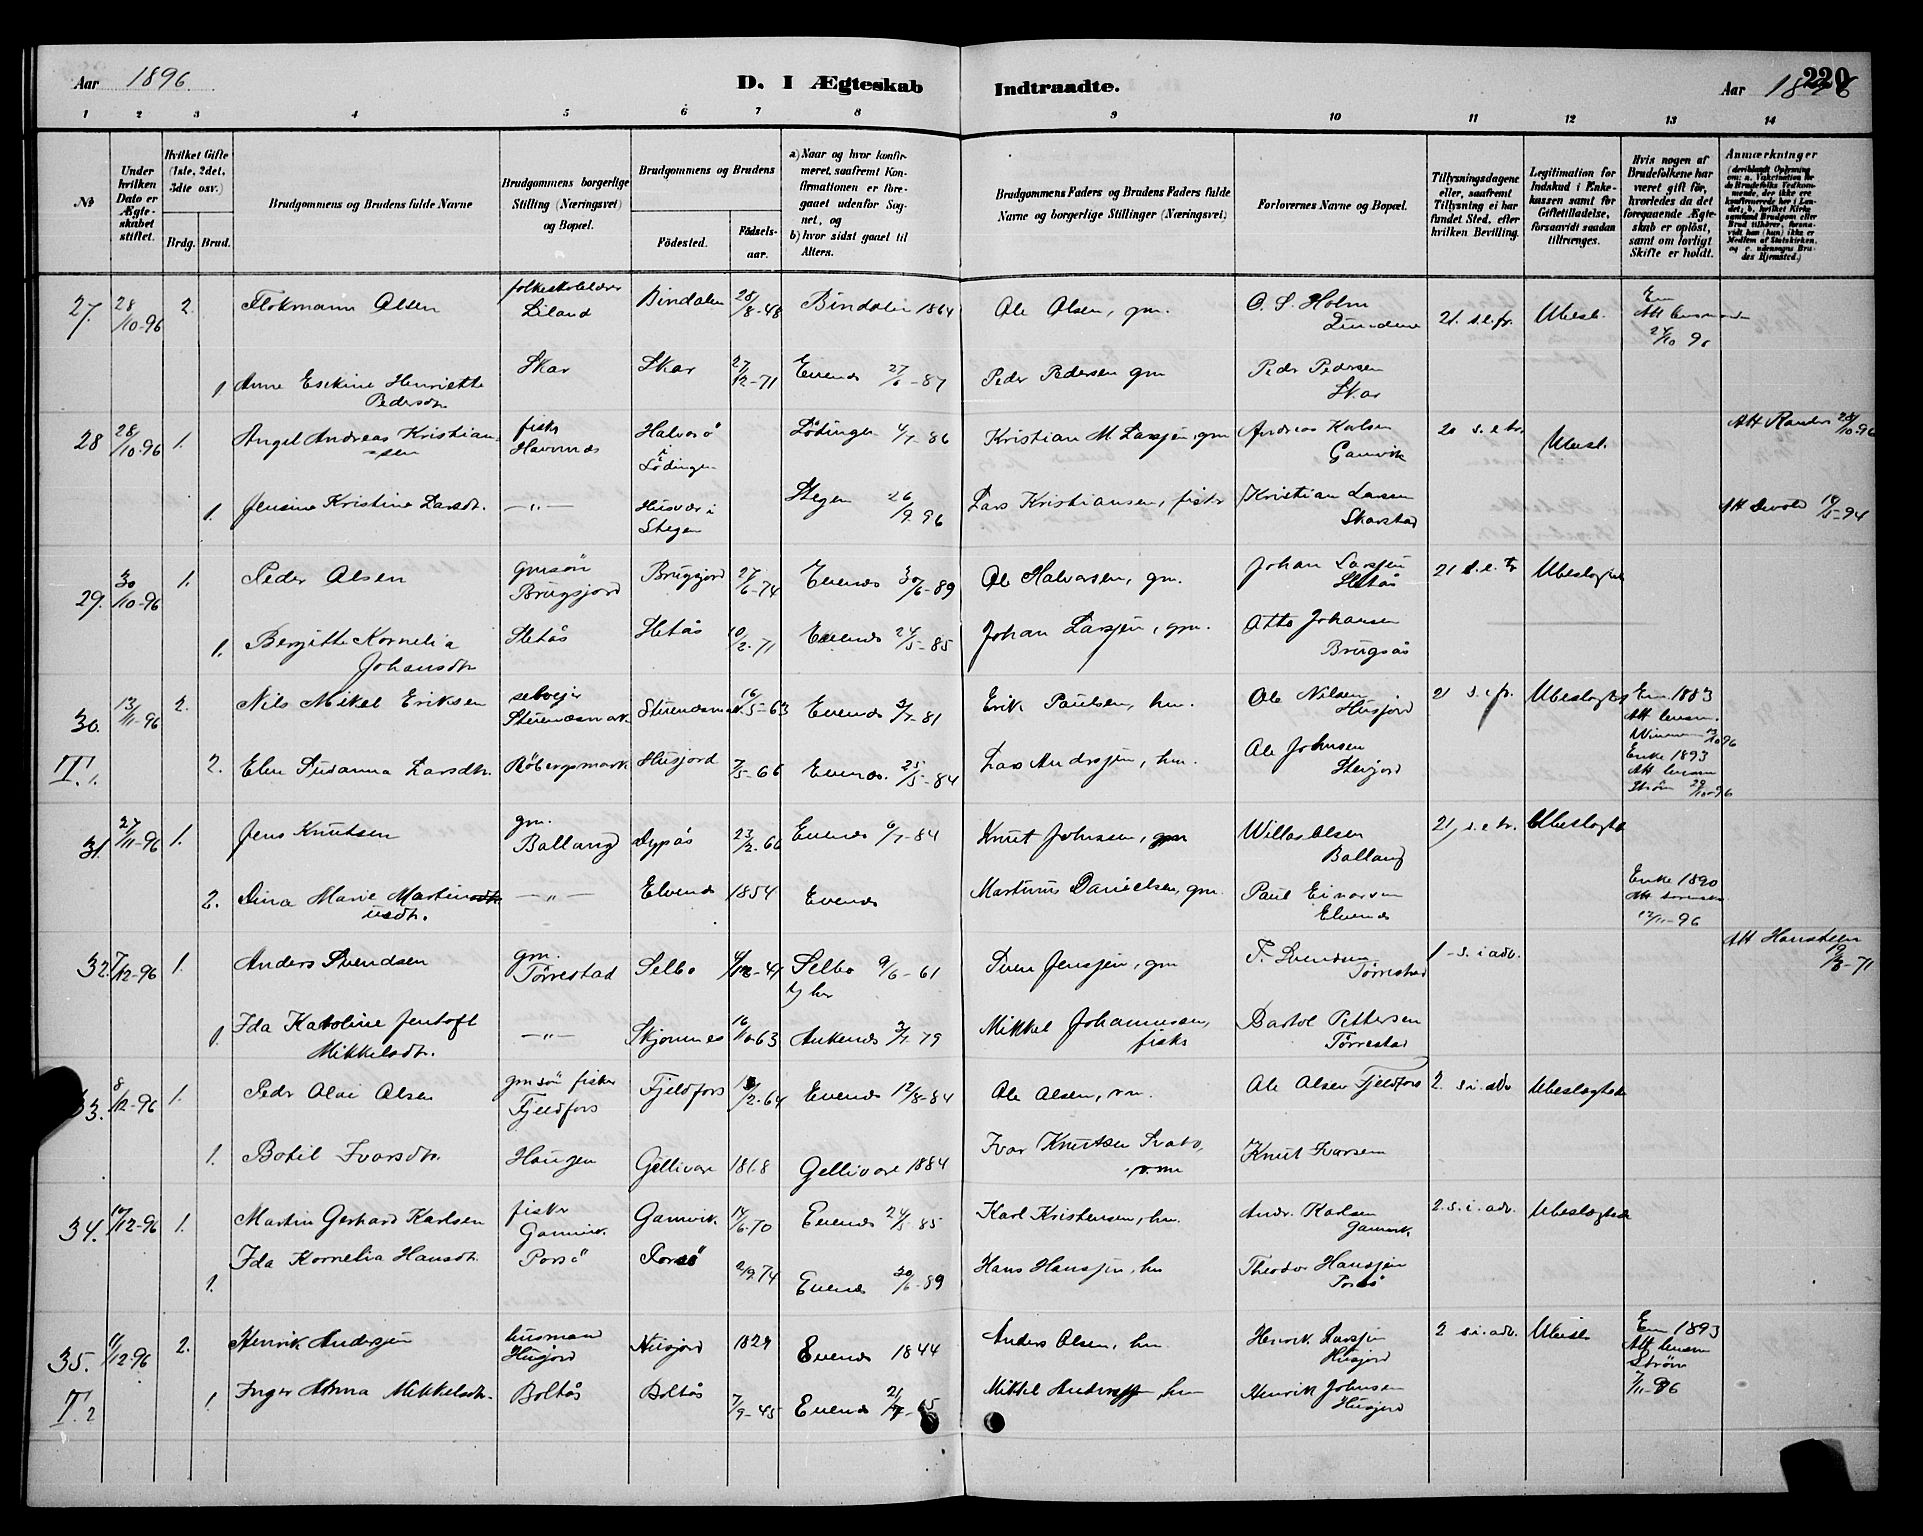 Aar 1896.
D. I Ægteskab Indtraadte.
220
Aar 1896
1 2 3 4 5 6 7 8 9 10 11 12 13 14
№
Under hvilken Dato er Ægteskabet stiftet.
Hvilket Gifte (1ste, 2det, 3die osv.)
Brdg. Brud.
Brudgommens og Brudens fulde Navne
Brudgommens borgerlige Stilling (Næringsvei) og Bopæl.
Brudgommens og Brudens
Födested.
Födsels-aar.
a) Naar og hvor konfirmeret, saafremt Konfirmationen er foregaaet udenfor Sognet, og
b) hvor sidst gaaet til Alters.
Brudgommens Faders og Brudens Faders fulde Navne og borgerlige Stillinger (Næringsvei)
Forlovernes Navne og Bopæl.
Tillysningsdagene eller, saafremt Tillysning ei har fundet Sted, efter hvilken Bevilling.
Legitimation for Indskud i Enkekassen samt for Giftetilladelse, forsaavidt saadan tiltrænges.
Hvis nogen af Brudefolkene har været gift för, hvorledes da det foregaaende Ægteskab er oplöst, samt om lovligt Skifte er holdt.
Anmærkninger
27. 28/10-96 2. Flokmann Olsen Liland Bindalen 28/8-48 Bindalen 1864 Ole Olsen, gm. O. S. Holm 21. s.e.tr. Ubesl.
1 Anne Eskine Henriette Pedersdtr. Skar Skar 27/12-71 Evenes 27/6-87 Peder Pedersen gm Peder Pedersen Skar
28 28/10-96 1. Angel Andreas Kristiansen fisker Havnnes Halvarö i Lödingen Lödingen 4/7-86 Kristian M Larsen, gm Andreas Karlsen Gamvik 20 s.e.tr. Ubesl. Att Randers 28/10-96
1. Jensine Kristine Larsdtr. —"— Husvær i Stegen Stegen 26/9 96 Lars Kristiansen, fisker Kristian Larsen Skarstad 10/5-94
29. 30/10-96 1. Peder Olsen gmsön Brugsjord Brugsjord 27/6-74 Evenes 30/6-89 Ole Halvorsen, gm. Johan Larsen Sletås 21 s.e.tr Ubeslægtet
1. Bergitte Kornelia Johansdtr Sletås Sletås 10/2-71 Evenes 24/5-85 Johan Larsen, gm. Otto Johansen Brugsås
30. 13/11-96 2. Nils Mikal Eriksen selveier Stunesmark Stunesmark 16/5-63 Evenes 3/7-81 Erik Paulsen, hm. Ole Nilsen Husjord 21 s.e.tr. Ubeslægtet Em. 1883
T. 1. 2. Elen Susanna Larsdtr. Röbergsmark Husjord 7/5-66 Evenes 25/5-84 Lars Andersen, hm. Ole Johnsen Enke 1893 Att lensm Ström 29/10-96
31. 27/11-96 1. Jens Knutsen gm. Balland Dypås 23/2-66 Evenes 6/7-84 Knut Johnsen, gm Willas Olsen Balland 21, s.e.tr. Ubeslægtet
2. Dina Marie Martinusdtr. —"— Elvenes 1854 Evenes Martinus Danielsen, gm. Paul Einarsen Elvenes Enke 1890 12/11-96
32. 7/12-96 1. Anders Svendsen gm. Tørrestad Selbo 4/12-41 Selbo 9/6-61 Sven Jensen, gm F. Svendsen Tørrestad 1-s.i.adv. Att Hansteen 9/8-71
1 Ida Karoline Jentoft Mikkelsdtr. —"— Skjomnes 16/10-63 Ankenes 3/7-79 Mikkel Johannesen, fisker Bartol Pettersen Tørrestad
33. 8/12-96 1. Peder Olai Olsen gmsön fisker Fjeldfors Fjeldfors 13/2-64 Evenes 12/8-84 Ole Olsen, rm. Ole Olsen Fjeldfors 2 s.i.adv Ubeslægtede
1. Botil Ivarsdtr. Haugen Gellivare 1868 Gellivare 1884 Ivar Knutsen Svabo, Knut Ivarsen
34. 10/12-96 1. Martin Gerhard Karlsen fisker Gamvik. Gamvik 14/6-70 Evenes 24/5-85 Karl Kristensen, hm. Andr. Karlsen Gamvik 2.s.i.adv. Ubeslægtede
1. Ida Kornelia Hansdtr. Porsö Porsö 2/9.74 Evenes 30/6-89 Hans Hansen, hm Theodor Hansen Porsö
35. 11/12-96 2. Henrik Andersen husmand Husjord Husjord 1829 Evenes 1844 Anders Olsen, hm Henrik Larsen Husjord 2 s.i.adv. Ubesl. Em 1893 Att lensm Ström 7/11-96
T. 2 1. Inger Anna Mikkelsdtr. Boltås Boltås 7/9-45 Evenes Mikkel Andersen, hm Henrik Johnsen Husjord